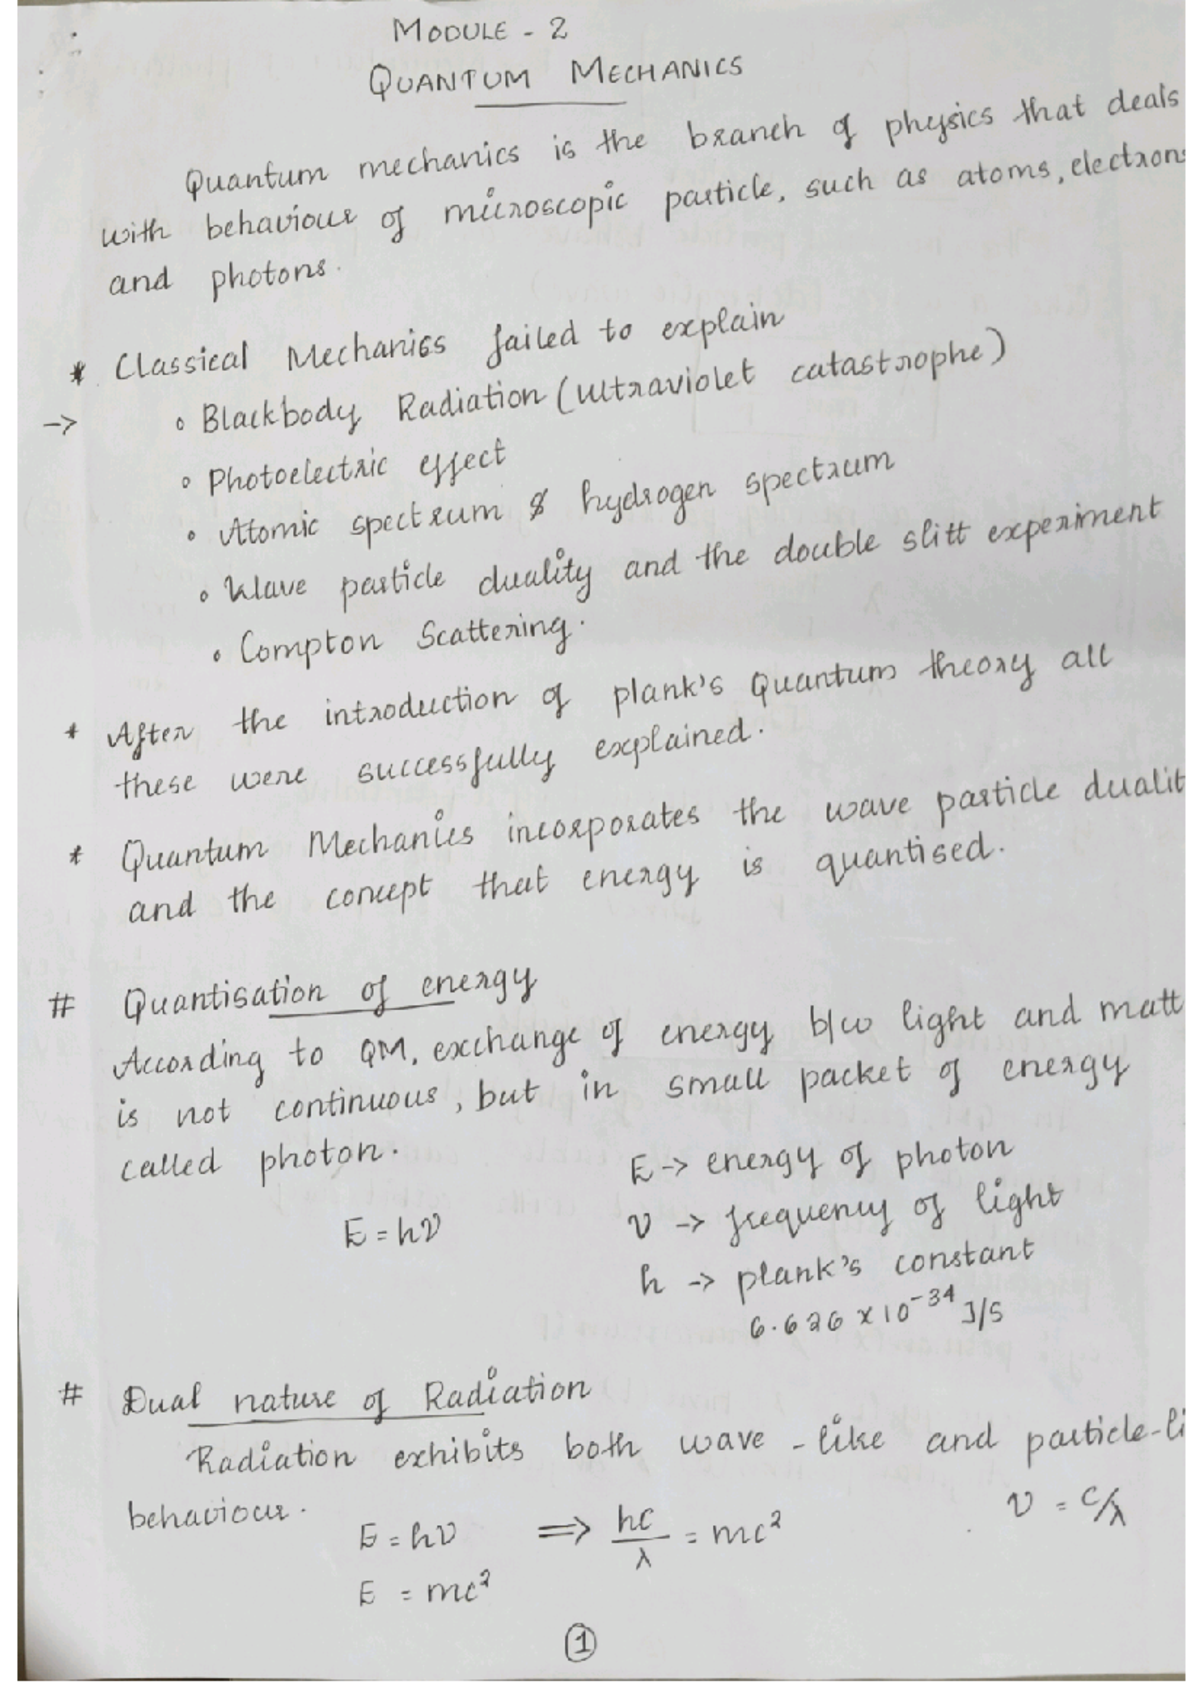 MODULE - 2
QUANTUM MECHANICS
Quantum mechanics is the branch of physics that deals
with behaviour of microscopic particle, such as atoms, electrons
and photons.
* Classical Mechanics failed to explain
-> ∘ Blackbody Radiation (ultraviolet catastrophe)
∘ Photoelectric effect
∘ Atomic spectrum & hydrogen spectrum
∘ Wave particle duality and the double slitt experiment
∘ Compton Scattering.
* After the introduction of plank's Quantum theory all
these were successfully explained.
* Quantum Mechanics incorporates the wave particle dualit
and the concept that energy is quantised.
# Quantisation of energy
According to QM, exchange of energy b/w light and matt
is not continuous, but in small packet of energy
called photon.
E -> energy of photon
E = hν ν -> frequency of light
h -> plank's constant
6.626 x 10⁻³⁴ J/S
# Dual nature of Radiation
Radiation exhibits both wave - like and particle-li
behaviour.
E = hν => hc/λ = mc² ν = c/λ
E = mc²
1